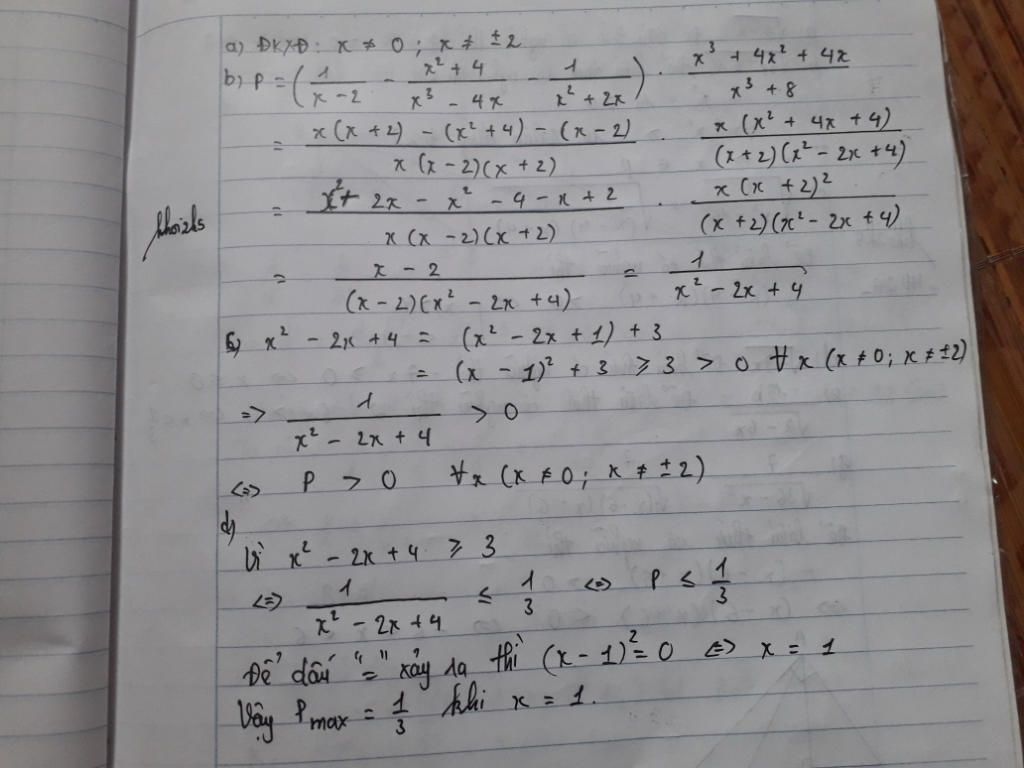 a) ĐKXĐ: x ≠ 0; x ≠ ±2
b) P = (1/(x - 2) - (x² + 4)/(x³ - 4x) - 1/(x² + 2x)) · (x³ + 4x² + 4x)/(x³ + 8)
= (x(x + 2) - (x² + 4) - (x - 2))/(x(x - 2)(x + 2)) · (x(x² + 4x + 4))/((x + 2)(x² - 2x + 4))
= (x² + 2x - x² - 4 - x + 2)/(x(x - 2)(x + 2)) · (x(x + 2)²)/((x + 2)(x² - 2x + 4))
= (x - 2)/((x - 2)(x² - 2x + 4)) = 1/(x² - 2x + 4)
c) x² - 2x + 4 = (x² - 2x + 1) + 3
= (x - 1)² + 3 ⩾ 3 > 0 ∀x (x ≠ 0; x ≠ ±2)
=> 1/(x² - 2x + 4) > 0
<=> P > 0 ∀x (x ≠ 0; x ≠ ±2)
d)
Vì x² - 2x + 4 ⩾ 3
<=> 1/(x² - 2x + 4) ≤ 1/3 <=> P ≤ 1/3
Để dấu "=" xảy ra thì (x - 1)² = 0 <=> x = 1
Vậy Pmax = 1/3 khi x = 1.